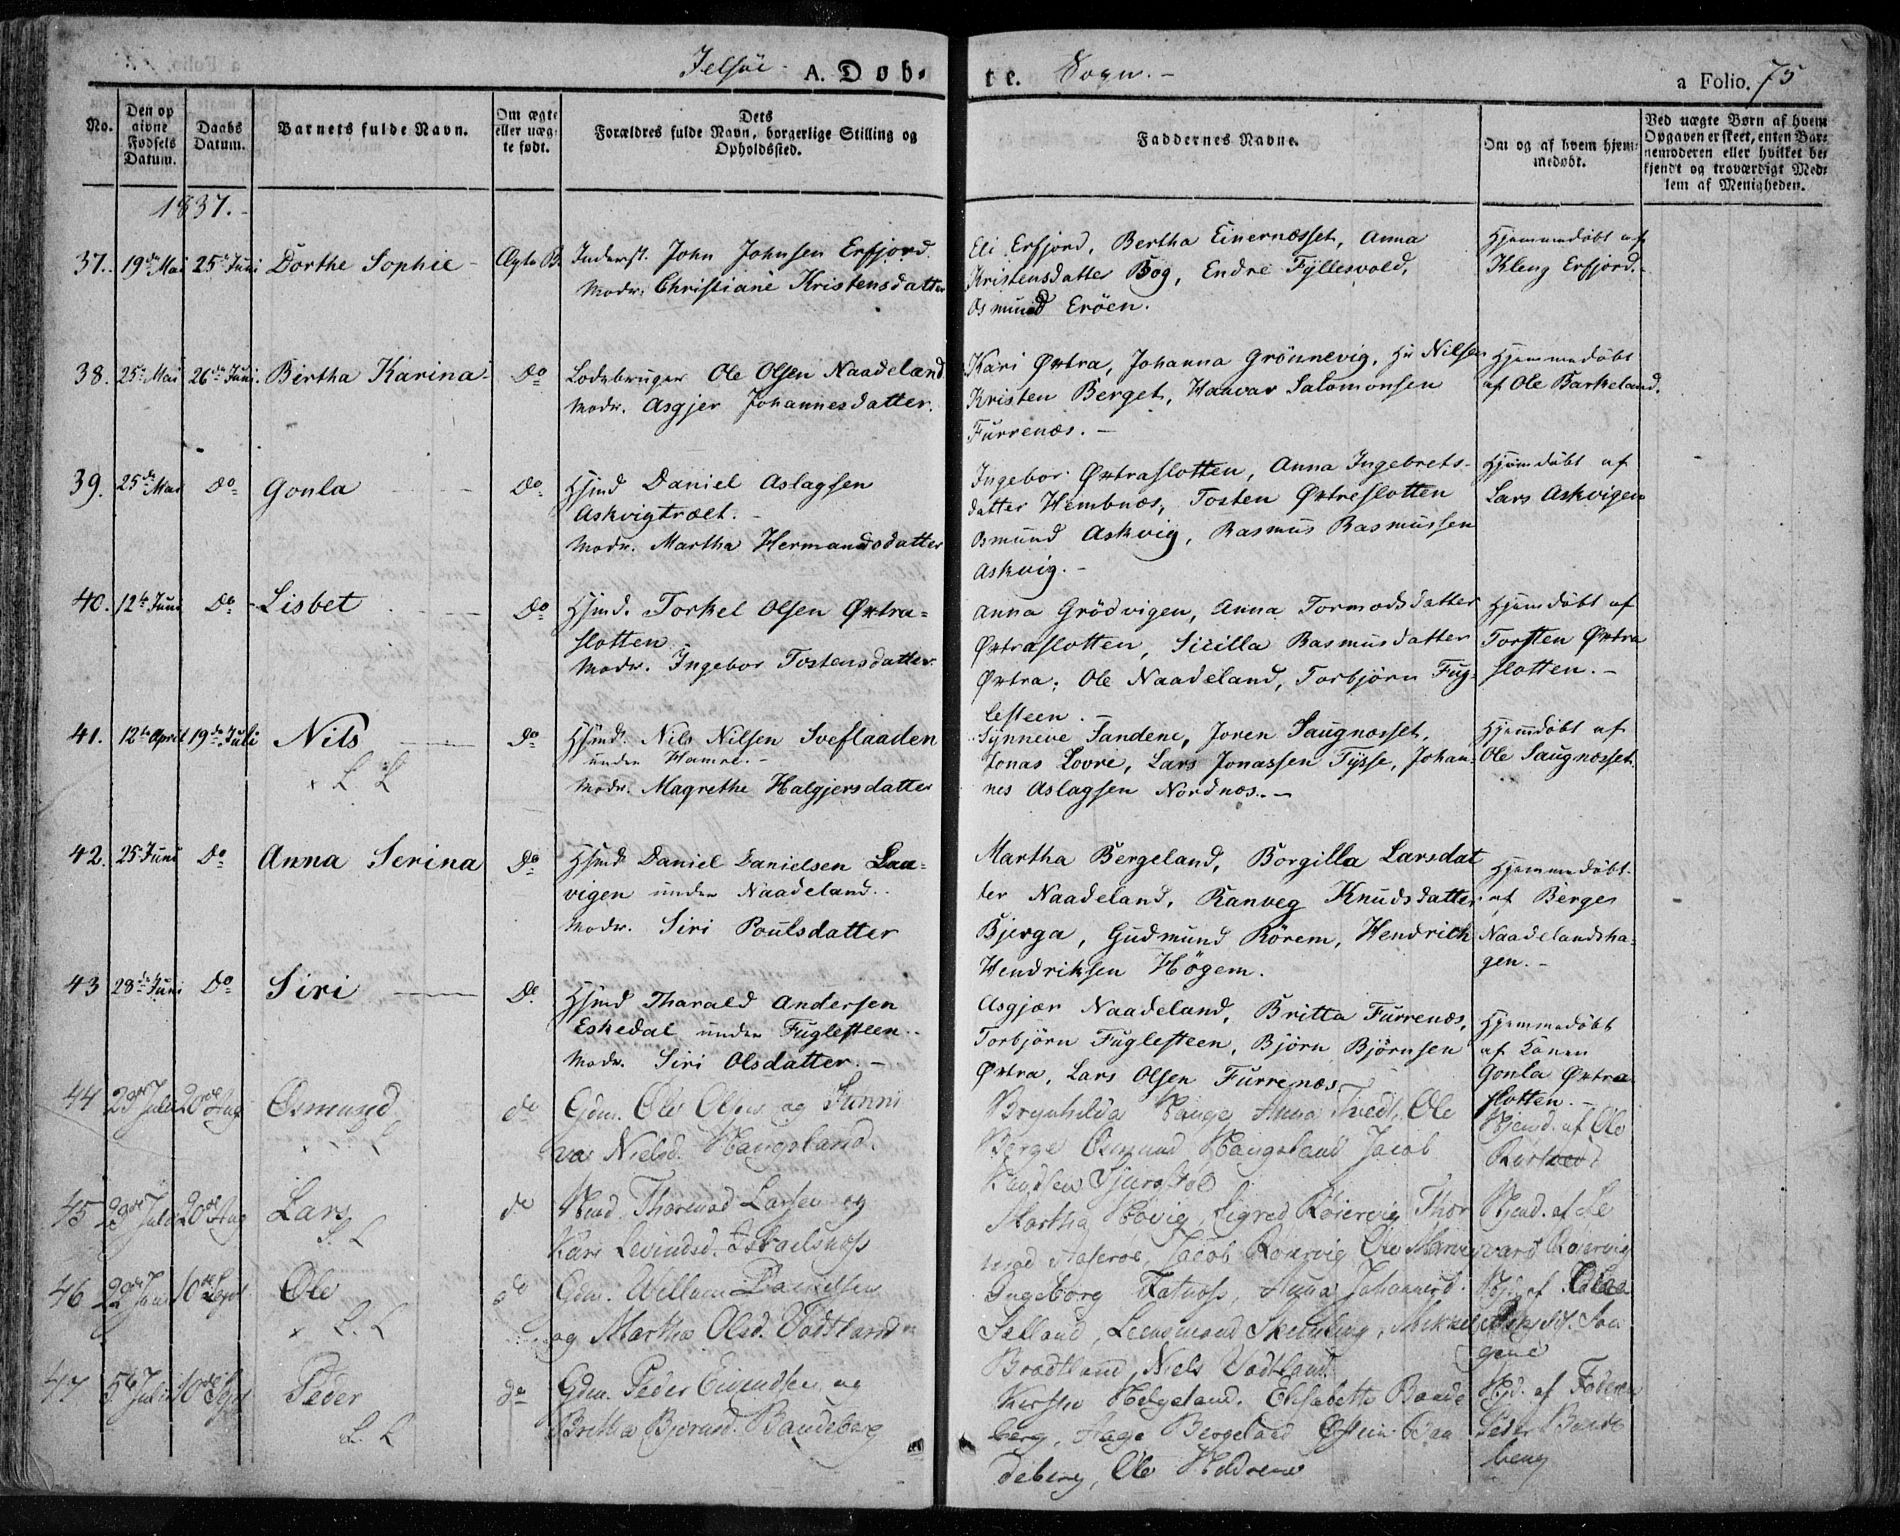 Jelsöe A. Döbte. Sogn. a Folio. 75
No.
Den opgivne Fødsels Datum.
Daabs Datum.
Barnets fulde Navn.
Om ægte eller uægte født.
Dets Forældres fulde Navn, borgerlige Stilling og Opholdssted.
Faddernes Navne.
Om og af hvem hjemmedøbt.
Ved uægte Børn af hvem Opgaven er skeet, enten Barnemoderen eller hvilket bekjendt og troværdigt Medlem af Menigheden.
1837.
37. 19de Mai 25de Juni Dorthe Sophie Ægte B. Inderst. John Johnsen Erfjord.
Modr: Christiane Kristensdatter
Eli Erfjord, Bertha Einernæsset, Anna
Kristensdatter Bog, Endre Fyllesvold,
Osmund Eröen.
Hjemmedöbt af
Kleng Erfjord.
38. 25de Mai 26de Juni Birtha Karina Do Lodsbruger Ole Olsen Naadeland
Modr. Asgjer Johannesdatter.
Kari Øvtra, Johanna Grönnevig, Hr Nilsen
Kristen Berget, Haavar Salomonsen
Furrenæs.
Hjemmedöbt
af Ole Barkeland.
39. 25de Mai Do Gonla Do Hsmd Daniel Aslagsen
Askvigtræet.
Modr. Martha Hermandsdatter
Ingebor Øvtraslotten, Anna Ingebrets-
datter Hembnæs, Tosten Øvtreslotten
Osmund Askvig, Rasmus Rasmussen
Askvig.
Hjemdöbt af
Lars Askvigen
40. 12te Juni Do Lisbet Do Hsmd. Torkel Olsen Øvtra-
slotten
Modr. Ingebor Tostensdatter
Anna Grödvigen, Anna Tormodsdatter
Øvtraslotten, Sicilla Rasmusdatter
Øvtra, Ole Naadeland, Torbjörn Fug-
lesteen.
Hjemdöbt af
Torsten Øvtra
slotten.
41. 12te April 19de Juli Nils Do Hsmd. Nils Nilsen Sveflaaden
under Hamre.
Modr. Magrethe Halgjersdatter
x L. L
Synneve Sandene, Joren Saugnæsset,
Jonas Lovre, Lars Jonassen Tysse, Johan-
nes Aslagsen Nordnæs.
Hjemdöbt af
Ole Saugnæsset.
42. 25 Juni Do Anna Serina Do Hsmd. Daniel Danielsen Laa-
vigen under Naadeland.
Modr. Siri Poulsdatter
Martha Bergeland, Borgilla Larsdat
ter Naadeland, Ranveg Knudsdatter
Bjerga, Gudmund Rörem, Hendrich
Hendriksen Högem.
Hjemmedöbt
af Berges
Naadelandsha-
gen.
43 28de Juni Do Siri Do. Hsmd Tharald Andersen
Eskedal under Fuglesteen.
Modr. Siri Olsdatter.
Asgjær Naadeland, Britta Furrenæs,
Torbjörn Fuglesteen, Björn Björnsen
Øvtra, Lars Olsen Furrenæs
Hjemmedöbt
af Konen
Gonla Øvtra
slotten.
44 Juli 20de Aug Osmund do Gdm. Ole Olsen og Sunni
va Nielsd. Haugsland.
Brynhilda Hauge Anna Tvedt, Ole
Berge Osmund Haugsland Jacob
Knudsen
Hjemd. af Ole
45 29de Juli 20de Aug Lars do Hmd. Larsen og
Kari
L. L
Martha Høvig, Sigred Røiervig Thor
Jacob Ole
Hjemd. af
Røiervig
46 22de 10de Sept Ole do Gdm. Willum
og Martha Olsd. Vadtland
x L. L
Ingeborg Fatnæs, Anna Johannesd.
Mikkel
Bradtland, Niels Vadtland
Hjd. af
47 5te Juli 10de Sept Peder do Gdm. Peder Eivindsen og
Britha Baadeberg
L. L
Helgeland, Elisabeth Baade
berg, Aage Bergeland Østein Baa
deberg, Ole
Hjd. af Faderen
Peder Baade
berg